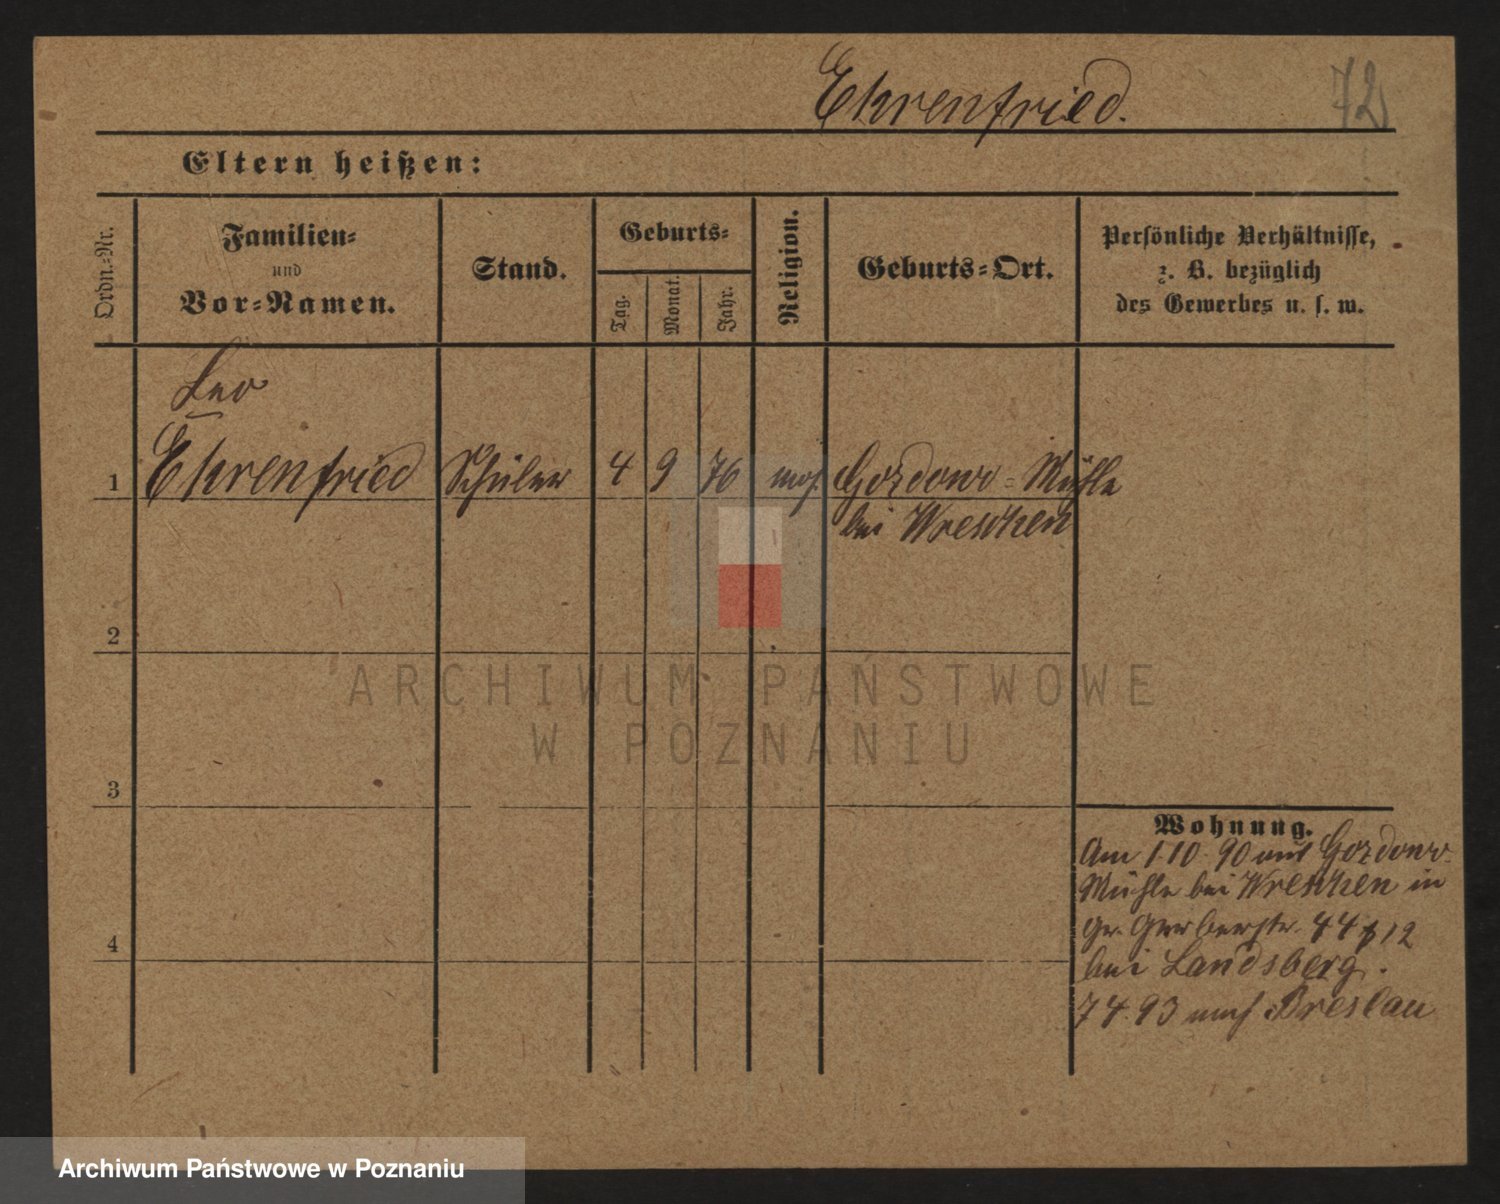 Ehrenfried. 72
Eltern heißen:
Ordn.-Nr.
Familien-
und
Vor-Namen.
Stand.
Geburts-
Tag.
Monat.
Jahr.
Religion.
Geburts-Ort.
Persönliche Verhältnisse,
z. B. bezüglich
des Gewerbes u. s. w.
Leo
1 Ehrenfried Schüler 4 9 76 mos. Gozdowo-Mühle
bei Wreschen
2
ARCHIWUM PAŃSTWOWE
W POZNANIU
3
Wohnung.
Am 1.10.90 aus Gozdowo-
Mühle bei Wreschen in
Gr. Gerberstr. 44 12
4
bei Landsberg.
7 4. 93 nach Breslau
Archiwum Państwowe w Poznaniu